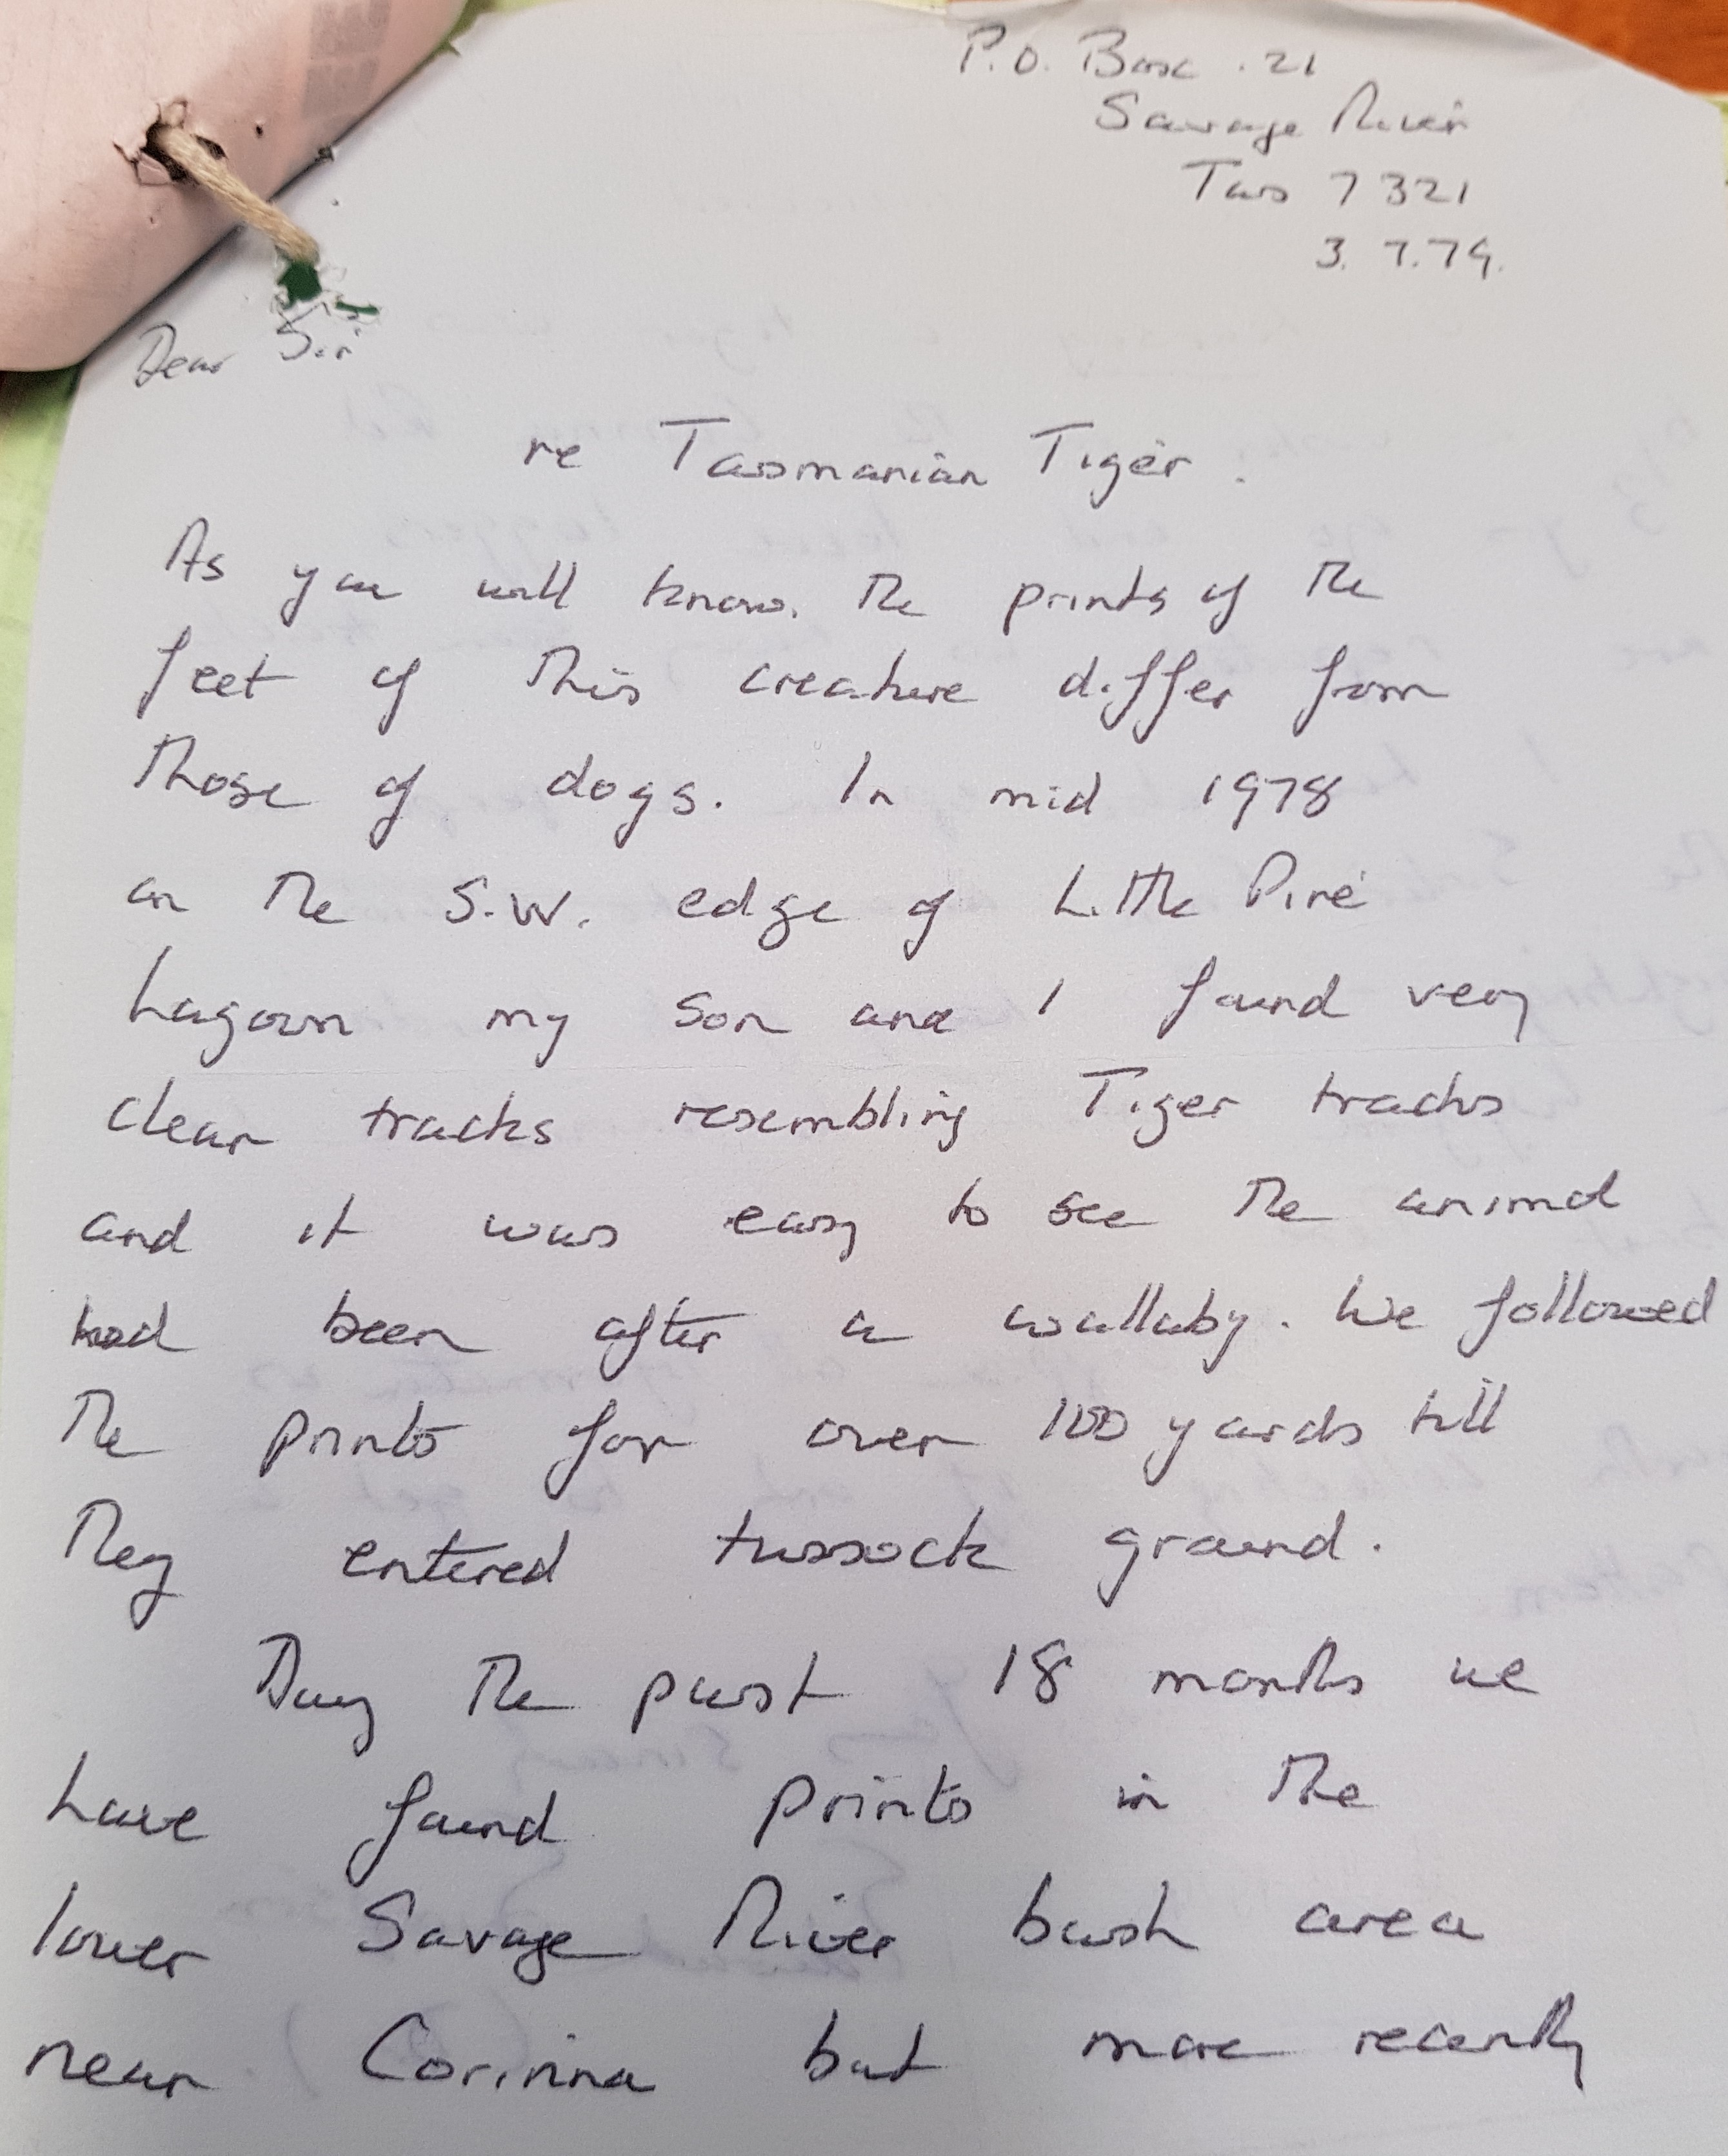 P.O. Box . 21
Savage River
Tas 7321
3. 7. 79.
Dear Sir
re Tasmanian Tiger .
As you will know. The prints of the
feet of this creature differ from
those of dogs. In mid 1978
on the S.W. edge of Little Pine
Lagoon my son and I found very
clear tracks resembling Tiger tracks
and it was easy to see the animal
had been after a wallaby. We followed
the prints for over 100 yards till
they entered tussock ground.
the past 18 months we
have found prints in the
lower Savage River bush area
near Corinna but more recently